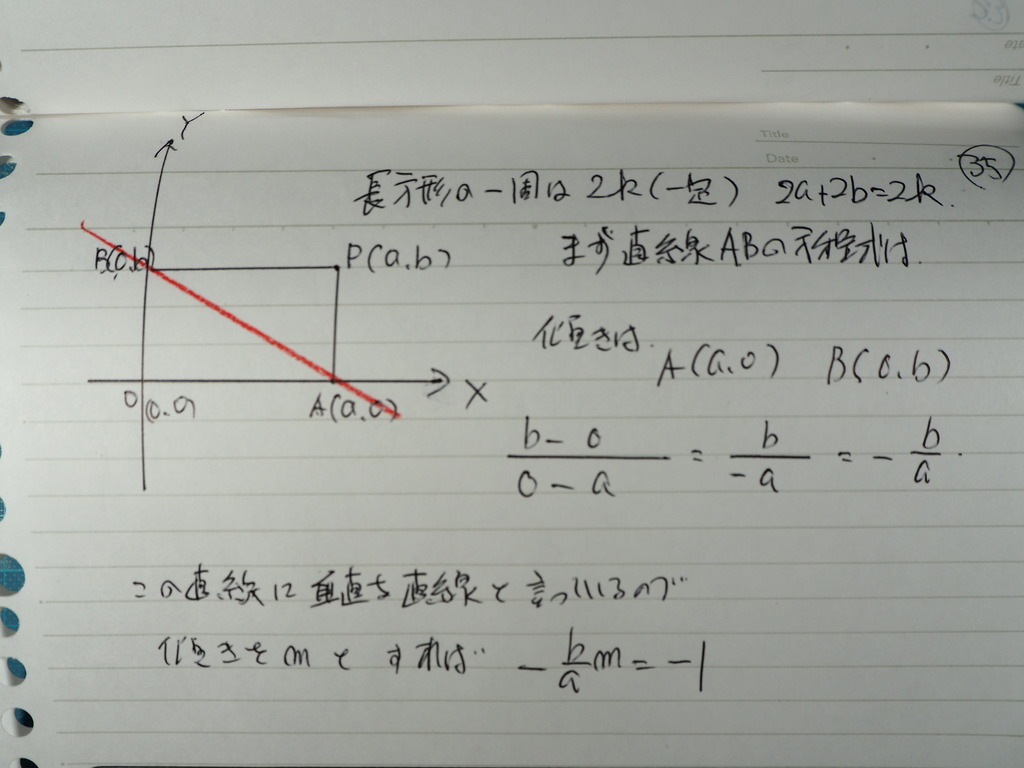 Title
Date
㉟
長方形の一周は 2k(一定) 2a+2b=2k.
まず直線ABの方程式は.
Y
B(0,b)
P(a,b)
傾きは.
A(a,0) B(0,b)
O
(0,0)
A(a,0)
X
b-0 / 0-a = b / -a = - b / a .
この直線に垂直な直線と言っているので
傾きをmとすれば - b / a m = -1